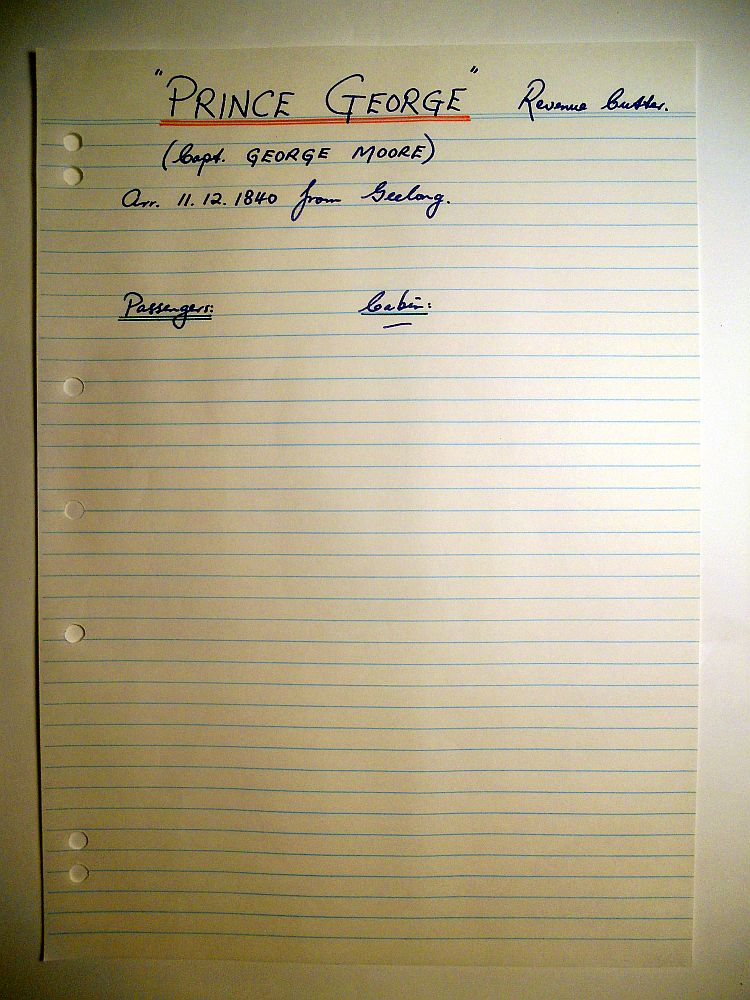 "PRINCE GEORGE" Revenue Cutter.
(Capt. GEORGE MOORE)
Arr. 11.12.1840 from Geelong.
Passengers: Cabin: